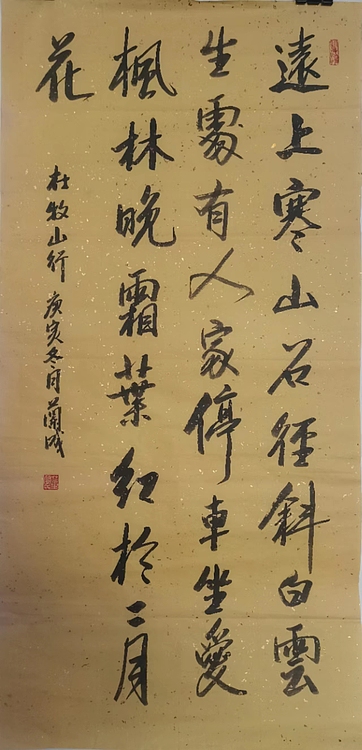 遠上寒山石徑斜白雲
生處有人家停車坐愛
楓林晚霜葉紅於二月
花
杜牧山行 庚寅冬月 蘭成